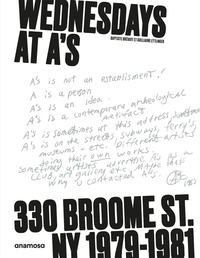 WEDNESDAYS
AT A'S
A's is not an establisment!
A is a person
A's is an idea.
A's is a contemporary archeological
Artifact
A's is sometimes at this address, sometimes
A's is on the streets, subways, ferry's,
museums - etc. Different artists
doing their own works.
Sometimes artists advertise A's as a
Club, art gallery etc. Maybe this is
Why U contacted A's.
330 BROOME ST.
anamosa
NY 1979-1981